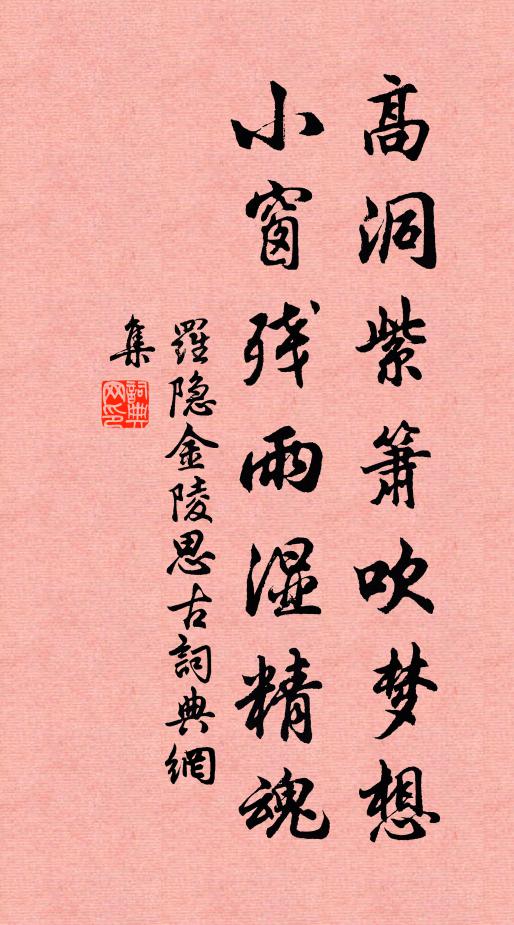 高洞紫箫吹梦想
小窗残雨湿精魂
羅隐金陵思古詞典網
集
詞典
网印